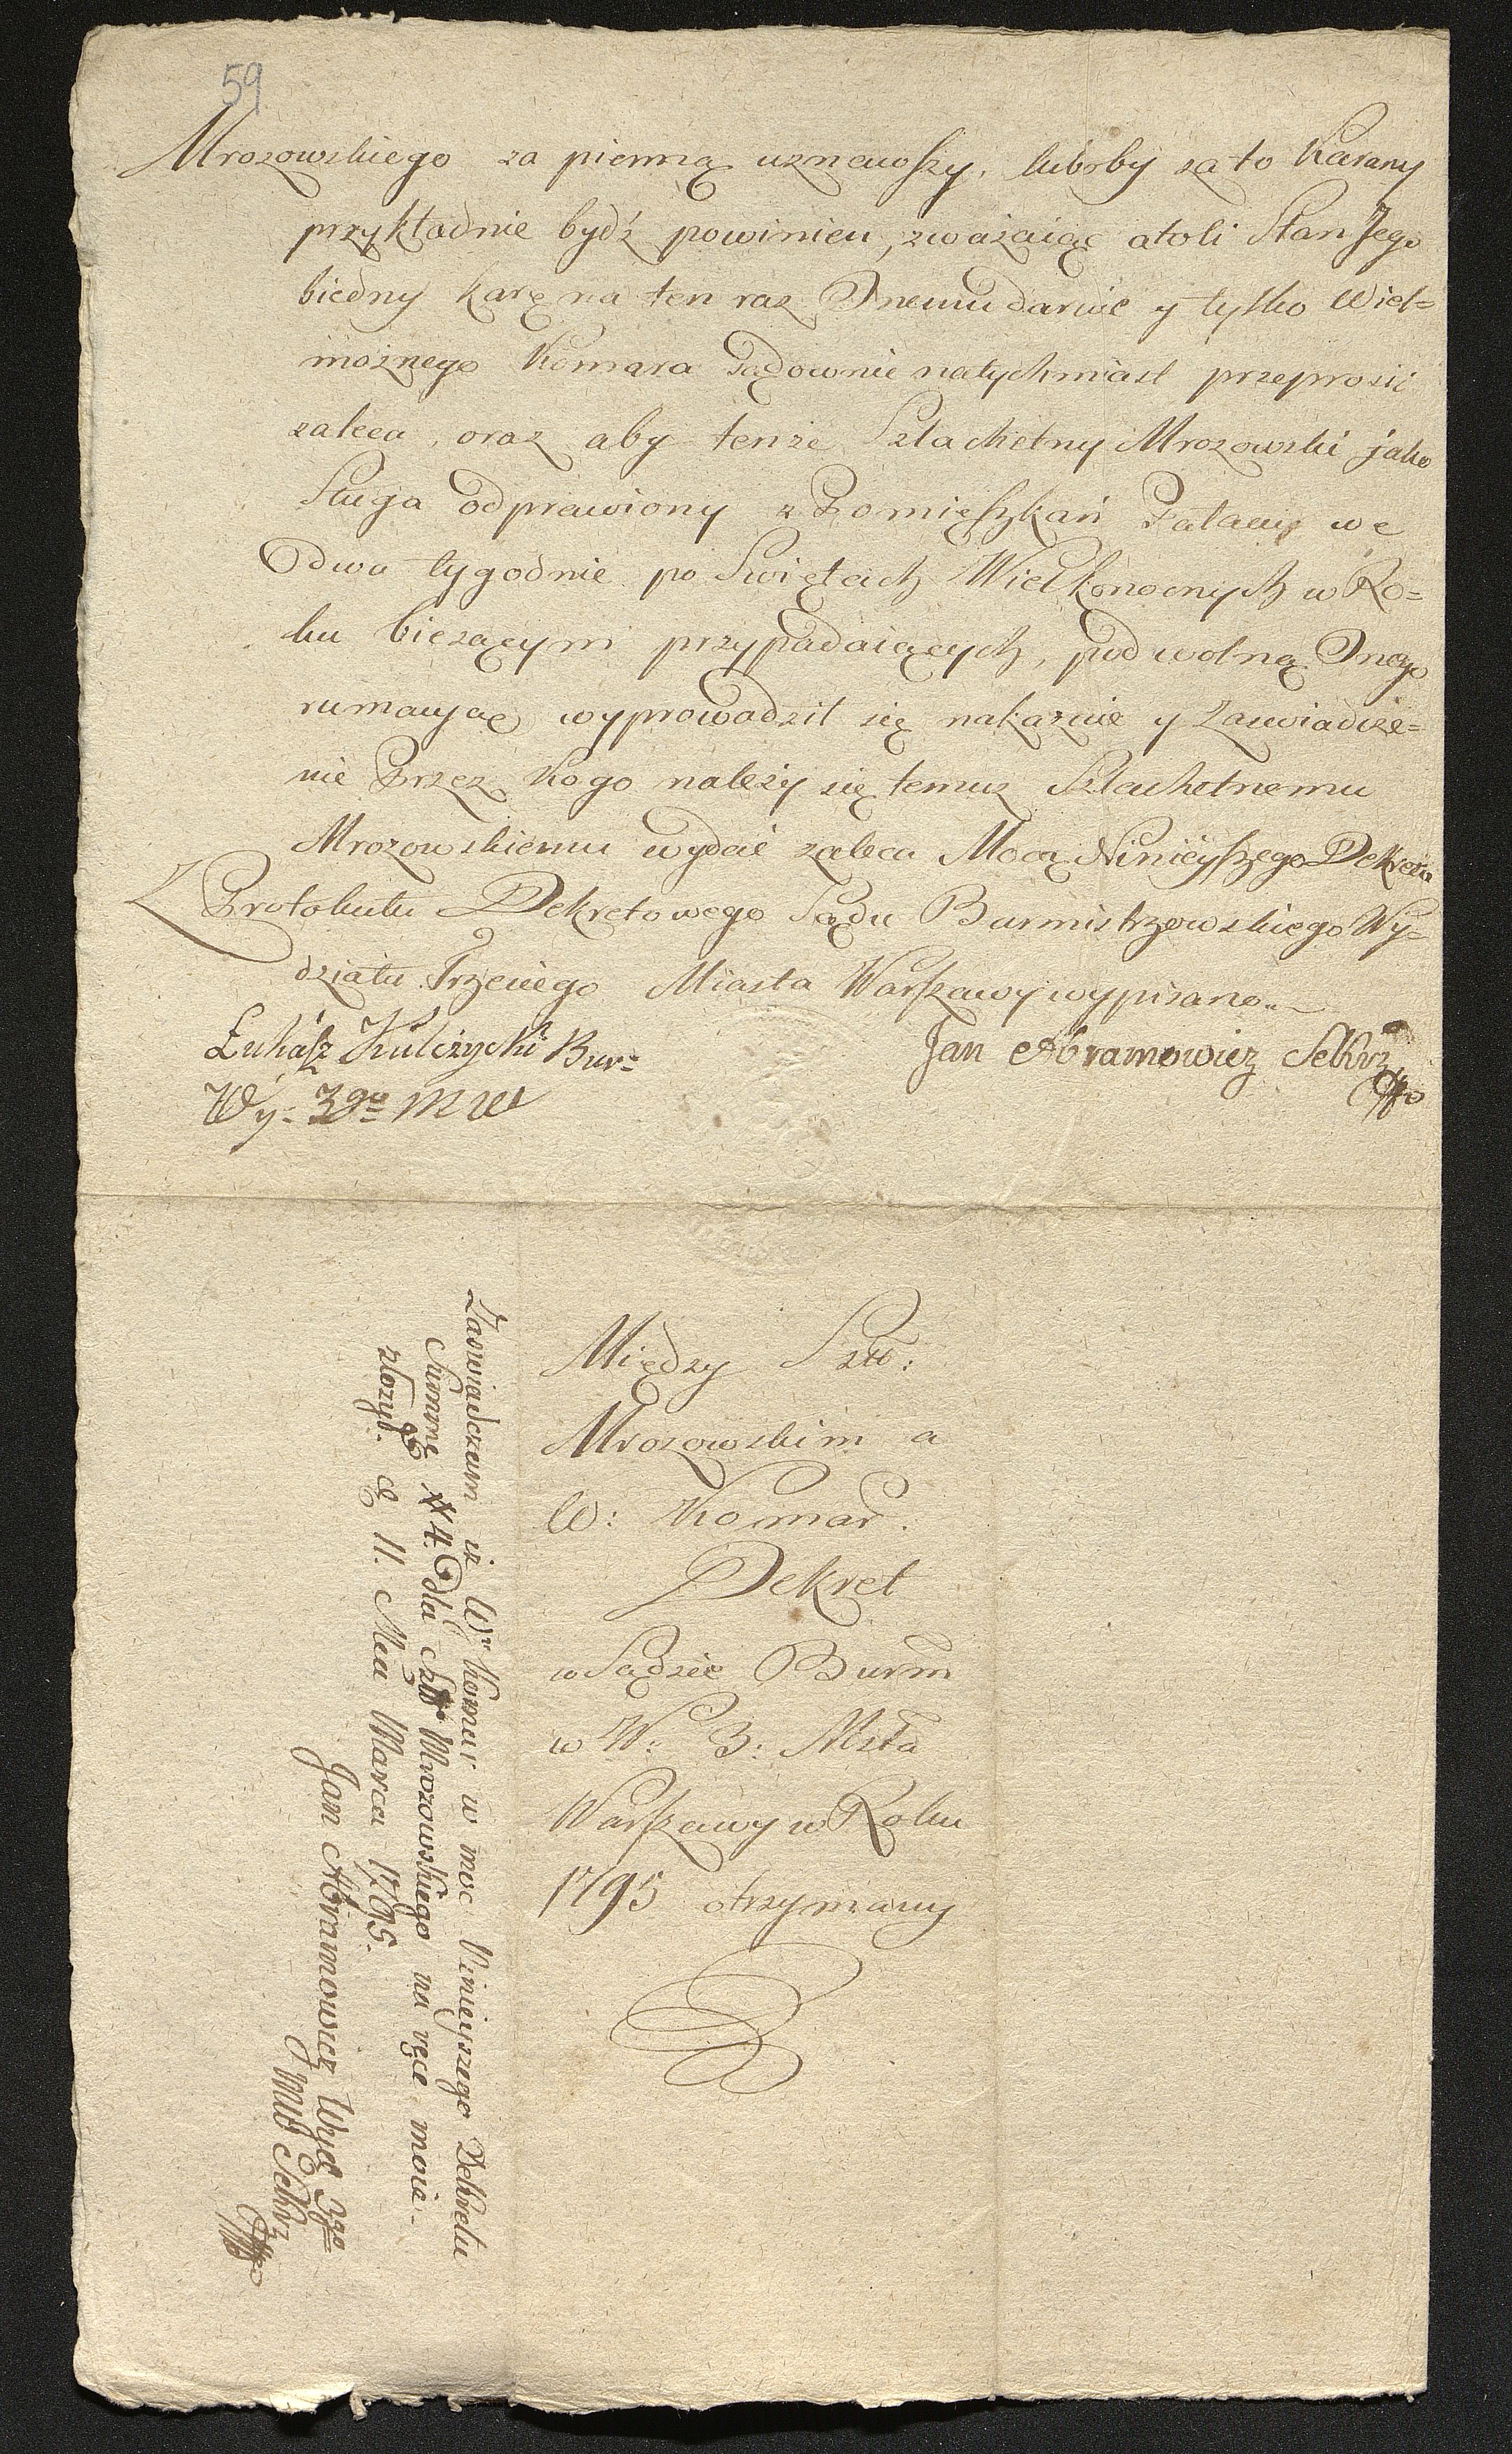 59
Mrozowskiego za pienną uznawszy, luboby za to karany
przykładnie bydź powinien, zważaiąc atoli Stan Jego
biedny karę na ten raz Onemu daruie y tylko Wiel=
możnego Komara Sądownie natychmiast przeprosić
zaleca, oraz aby tenże Szlachetny Mrozowski jako
Sługa odprawiony z Pomięszkań Pałacu we
dwa tygodnie po Swiętach Wielkonocnych w Ro=
ku bieżącym przypadaiących, pod wolną Onego
rumacyą wyprowadził się nakazuie y zaswiadcze=
nie Przez kogo należy się temuż Szlachetnemu
Mrozowskiemu wydać zaleca Mocą Ninieyszego Dekretu
Z Protokułu Dekretowego Sądu Burmistrzowskiego Wy=
działu Trzeciego Miasta Warszawy wypisano.
Łukasz Kulczycki Bur=
Wy= 3go MW
Jan Abramowicz Sekrz
Między Szl:
Mrozowskim a
W: Komar.
Dekret
w Sądzie Burm
w W: 3: Msta
Warszawy w Roku
1795 otrzymany
Zaswiadczam iż Wr Komar w moc Ninieyszego Dekretu
Summę # 4. dla Szlo Mrozowskiego na ręce moie
złożył. d 11. Mca Marca 1795.
Jan Abramowicz Wydł 3go
MW Sekrz